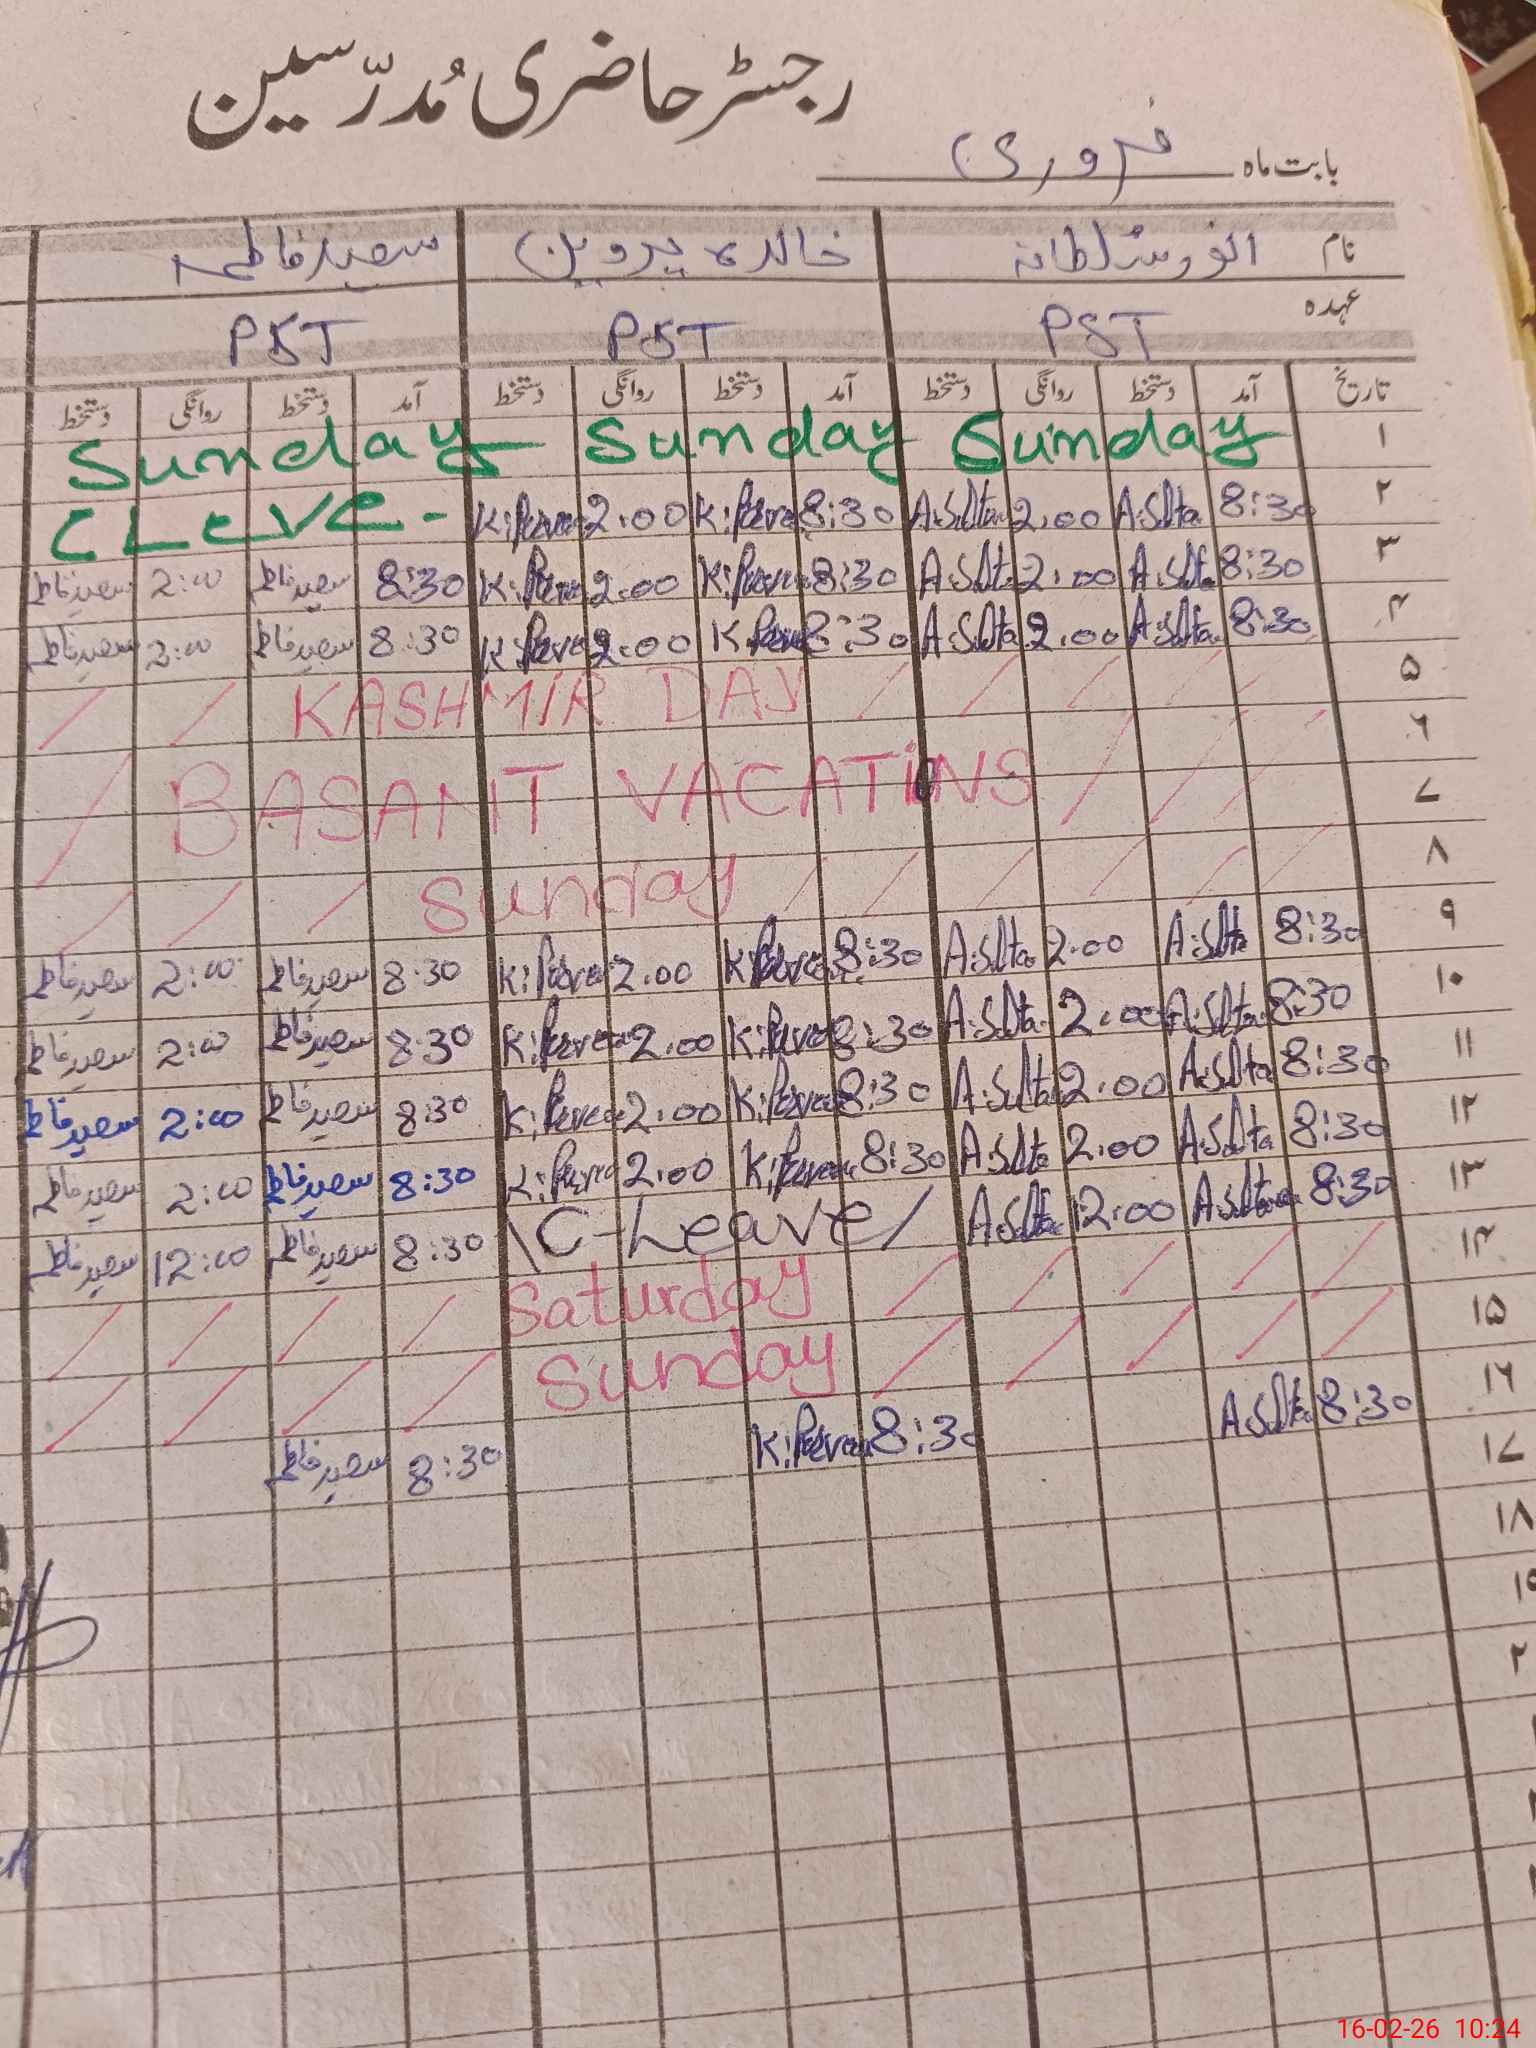 رجسٹر حاضری مُدرّسین
بابت ماہ فروری
نام انور سلطانہ خالدہ پروین سعید فاطمہ
عہدہ PST PST PST
تاریخ آمد دستخط روانگی دستخط آمد دستخط روانگی دستخط آمد دستخط روانگی دستخط
۱ Sunday Sunday Sunday
۲ 8:30 A.Slta 2.00 A.Slta 8:30 K:Perveen 2.00 K:Perveen CLeve-
۳ 8:30 A.Slta 2.00 A.Slta 8:30 K:Perveen 2.00 K:Perveen 8:30 سعید فاطمہ 2:00 سعید فاطمہ
۴ 8:30 A.Slta 2.00 A.Slta 8:30 K:Perveen 2.00 K:Perveen 8:30 سعید فاطمہ 2:00 سعید فاطمہ
۵ KASHMIR DAY
۶
BASANT VACATiONS
۷
۸ Sunday
۹ 8:30 A.Slta 2.00 A.Slta 8:30 K:Perveen 2.00 K:Perveen 8:30 سعید فاطمہ 2:00 سعید فاطمہ
۱۰ 8:30 A.Slta 2.00 A.Slta 8:30 K:Perveen 2.00 K:Perveen 8:30 سعید فاطمہ 2:00 سعید فاطمہ
۱۱ 8:30 A.Slta 2.00 A.Slta 8:30 K:Perveen 2.00 K:Perveen 8:30 سعید فاطمہ 2:00 سعید فاطمہ
۱۲ 8:30 A.Slta 2.00 A.Slta 8:30 K:Perveen 2.00 K:Perveen 8:30 سعید فاطمہ 2:00 سعید فاطمہ
۱۳ 8:30 A.Slta 12.00 A.Slta C-Leave 8:30 سعید فاطمہ 12:00 سعید فاطمہ
۱۴ Saturday
۱۵ Sunday
۱۶ 8:30 A.Slta 8:30 K:Perveen 8:30 سعید فاطمہ
۱۷
۱۸
16-02-26 10:24